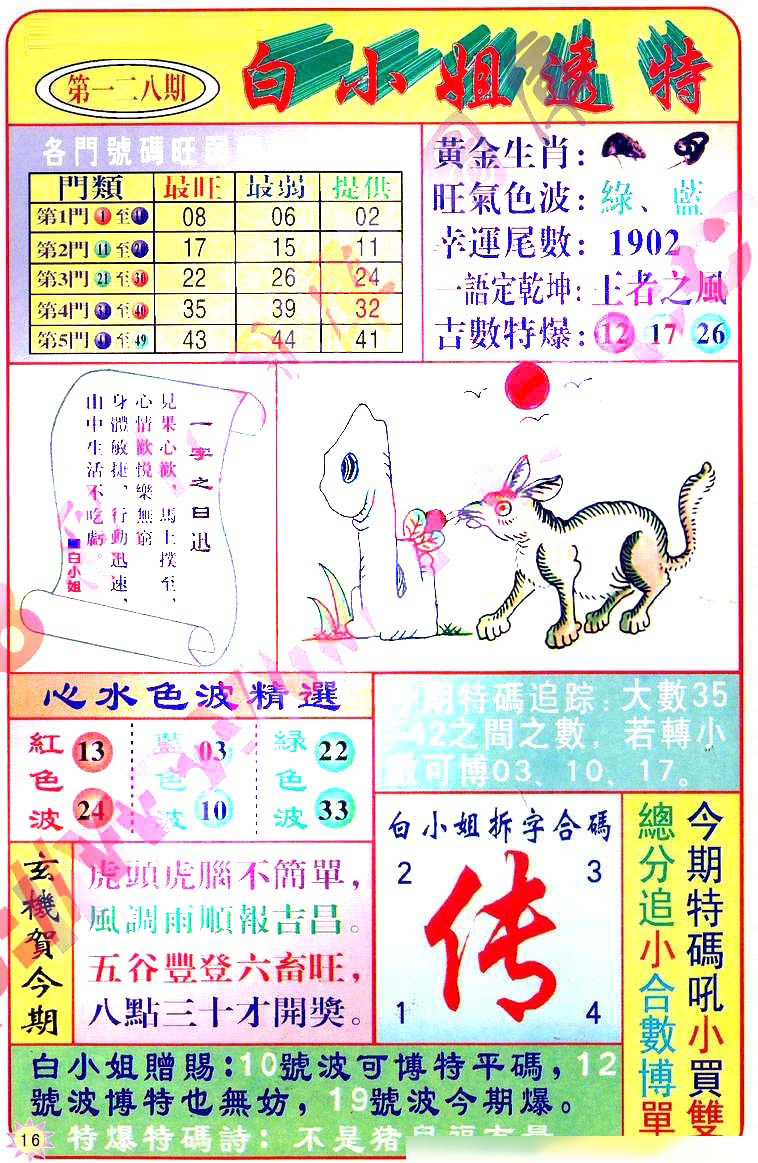 第一二八期
白小姐透特
各門號碼旺
門類 最旺 最弱 提供
第1門 1至 08 06 02
第2門 11至 17 15 11
第3門 21至30 22 26 24
第4門 至40 35 39 32
第5門 至49 43 44 41
黃金生肖:
旺氣色波:綠、藍
幸運尾數:1902
一語定乾坤:王者之風
吉數特爆:12 17 26
一字之曰迅
見果心歡,馬上撲至,
心情歡悦樂無窮
身體敏捷,行動迅速,
山中生活不吃虧。
■白小姐
心水色波精選
紅色波 13 24
藍色波 03 10
綠色波 22 33
期特碼追踪:大數35
-42之間之數,若轉小
數可博03、10、17。
玄機賀今期
虎頭虎腦不簡單,
風調雨順報吉昌。
五谷豐登六畜旺,
八點三十才開獎。
白小姐拆字合碼
2 3
传
1 4
今期特碼吼小買雙
總分追小合數博單
白小姐贈賜:10號波可博特平碼,12
號波博特也無妨,19號波今期爆。
特爆特碼詩:不是猪
16